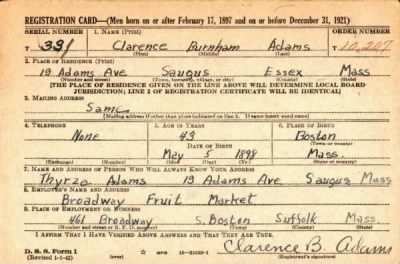 REGISTRATION CARD—(Men born on or after February 17, 1897 and on or before December 31, 1921)
SERIAL NUMBER 1. NAME (Print) ORDER NUMBER
T 331 Clarence Burnham Adams T 10,207
(First) (Middle) (Last)
2. PLACE OF RESIDENCE (Print)
19 Adams Ave Saugus Essex Mass
(Number and street) (Town, township, village, or city) (County) (State)
[THE PLACE OF RESIDENCE GIVEN ON THE LINE ABOVE WILL DETERMINE LOCAL BOARD
JURISDICTION; LINE 2 OF REGISTRATION CERTIFICATE WILL BE IDENTICAL]
3. MAILING ADDRESS
Same
[Mailing address if other than place indicated on line 2. If same insert word same]
4. TELEPHONE 5. AGE IN YEARS 6. PLACE OF BIRTH
None 43 Boston
DATE OF BIRTH (Town or county)
May 5 1898 Mass.
(Exchange) (Number) (Mo.) (Day) (Yr.) (State or country)
7. NAME AND ADDRESS OF PERSON WHO WILL ALWAYS KNOW YOUR ADDRESS
Thyrza Adams 19 Adams Ave Saugus Mass
8. EMPLOYER'S NAME AND ADDRESS
Broadway Fruit Market
9. PLACE OF EMPLOYMENT OR BUSINESS
461 Broadway S. Boston Suffolk Mass.
(Number and street or R. F. D. number) (Town) (County) (State)
I AFFIRM THAT I HAVE VERIFIED ABOVE ANSWERS AND THAT THEY ARE TRUE.
D. S. S. Form 1
(Revised 1-5-42) (over) GPO 16—21630-1 Clarence B. Adams
(Registrant's signature)